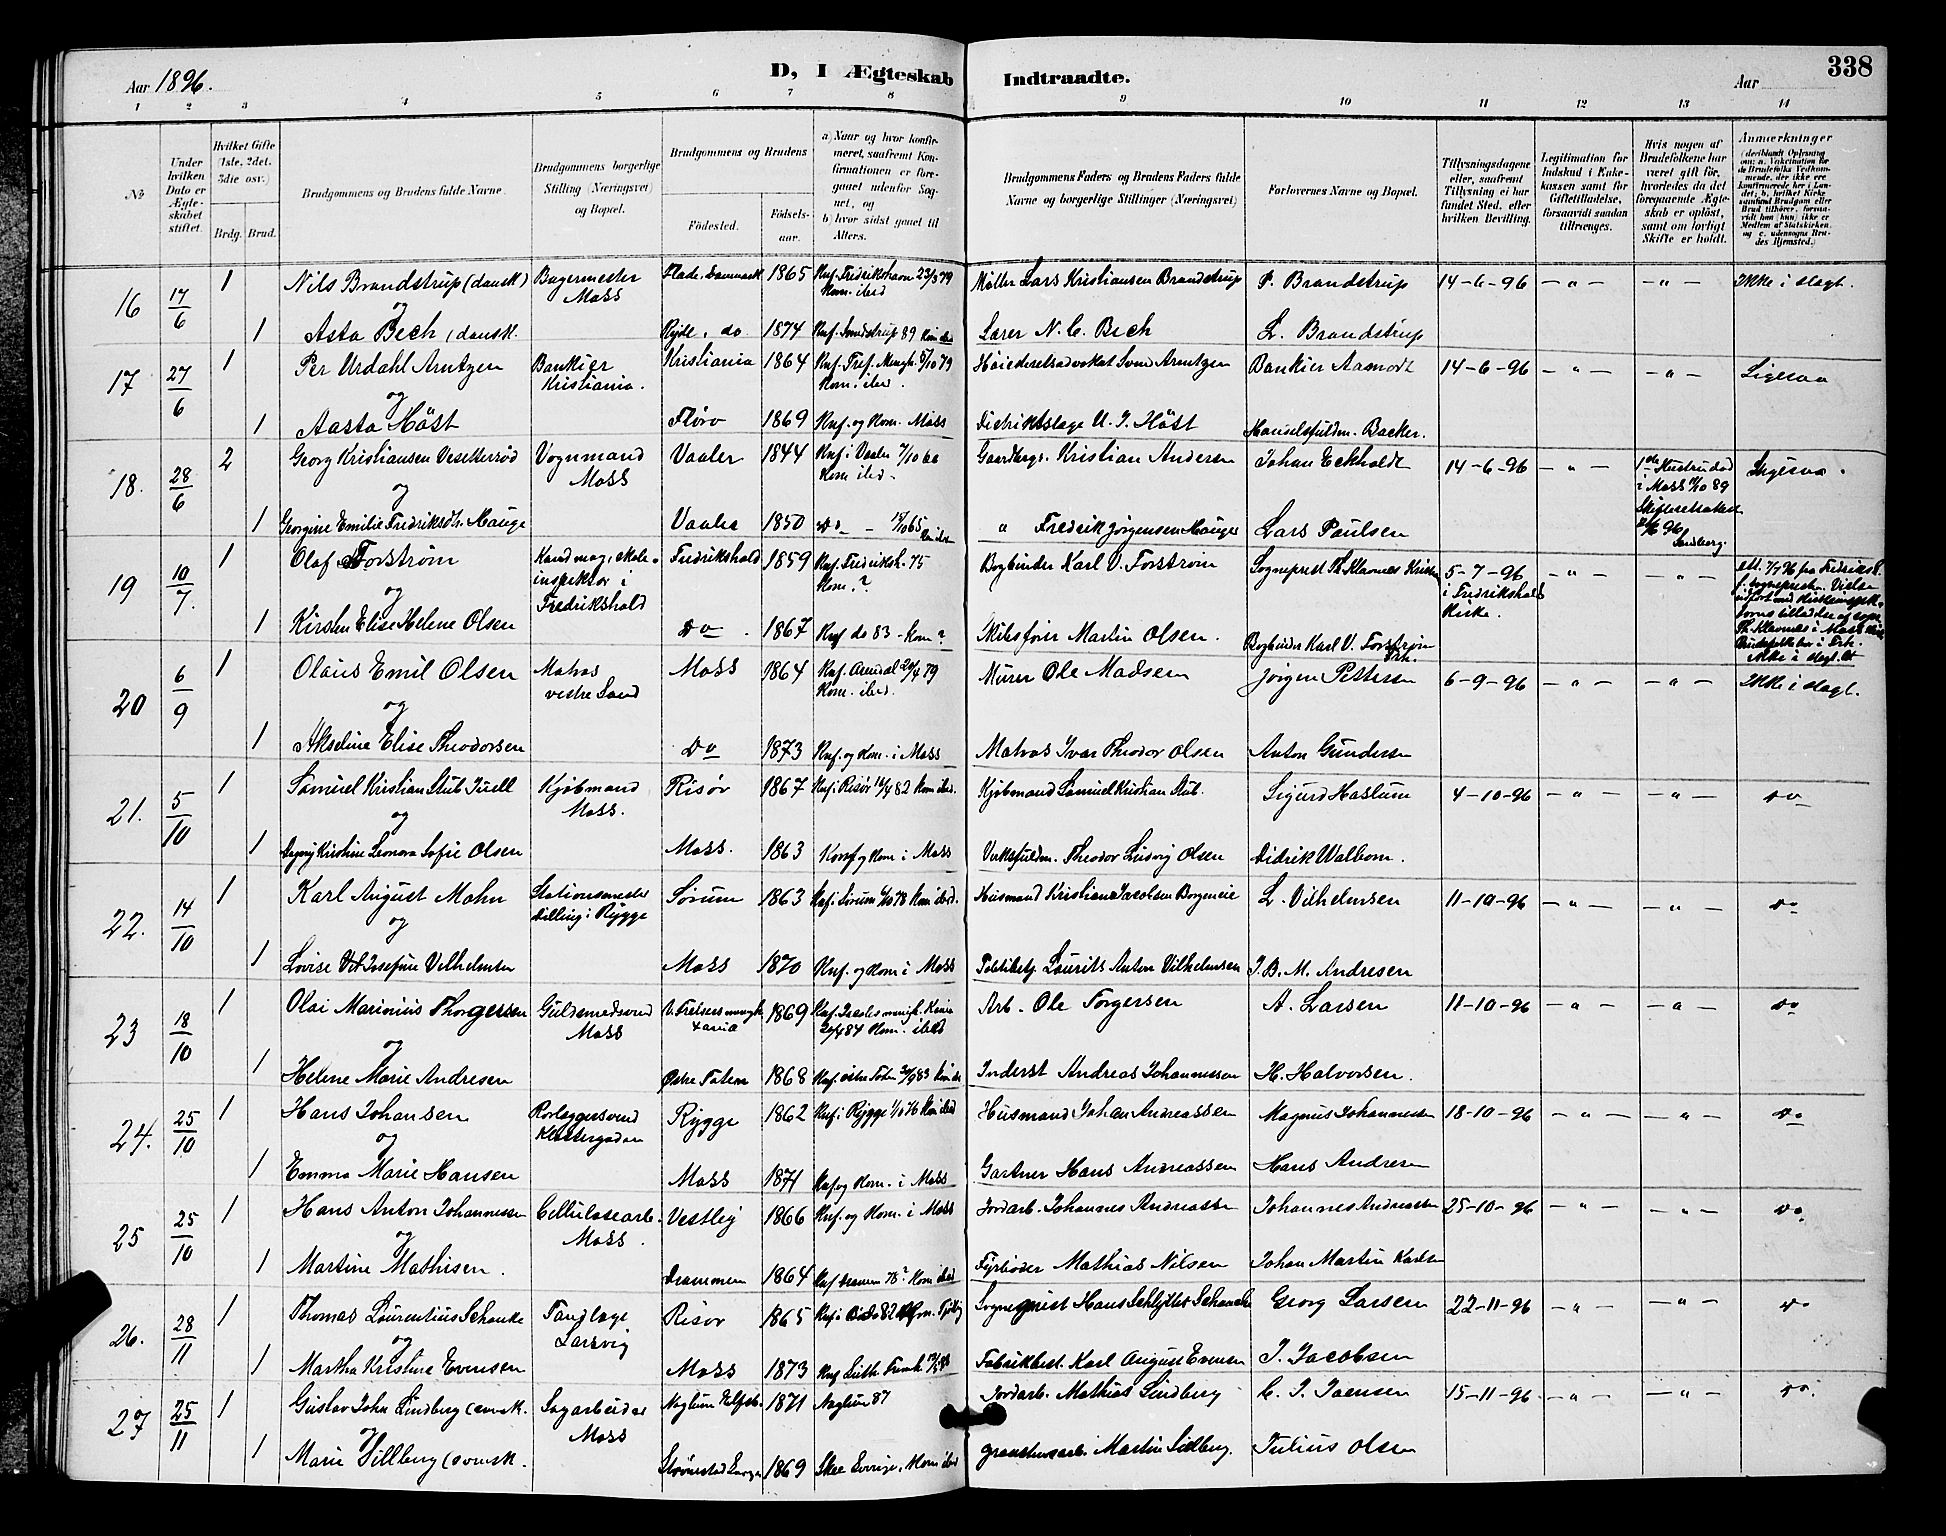 338
D, I Ægteskab Indtraadte.
Aar 1896.
Aar
1 2 3 4 5 6 7 8 9 10 11 12 13 14
No
Under hvilken Dato er Ægteskabet stiftet.
Hvilket Gifte (1ste, 2det, 3die osv.)
Brdg. Brud.
Brudgommens og Brudens fulde Navne.
Brudgommens borgerlige Stilling (Næringsvei) og Bopæl.
Brudgommens og Brudens
Fødested.
Fødselsaar.
a) Naar og hvor konfirmeret, saafremt Konfirmationen er foregaaet udenfor Sognet, og
b) hvor sidst gaaet til Alters.
Brudgommens Faders og Brudens Faders fulde Navne og borgerlige Stillinger (Næringsvei)
Forlovernes Navne og Bopæl.
Tillysningsdagene eller, saafremt Tillysning ei har fundet Sted, efter hvilken Bevilling.
Legitimation for Indskud i Enkekassen samt for Giftetilladelse, forsaavidt saadan tiltrænges.
Hvis nogen af Brudefolkene har været gift før, hvorledes da det foregaaende Ægteskab er opløst, samt om lovligt Skifte er holdt.
Anmerkninger
16 17/6 1 Nils Brandstrup (dansk) Bagermester Moss Flade, Danmark 1865 Knf. Fredrikshavn 23/3 79 Kom. ibid Møller Lars Kristiansen Brandstrup P. Brandstrup 14-6-96 — " — — " — Ikke i slægt.
og
1 Asta Bech (dansk. do 1874 89 Lærer N. C. Bech L. Brandstrup
17 27/6 1 Per Urdahl Arntzen Bankier Kristiania. Kristiania 1864 Knf. Kom. ibd. Høiesteretsadvokat Arntzen Bankier Aamodt 14-6-96 — " — — " — Ligesaa
og
1 Aasta Höst Florø 1869 Knf. og Kom. Moss Distriktslæge U. J. Höst Handelsfuldm. Backer.
18. 28/6 2 Georg Kristiansen Vesetterød Vognmand Moss Vaaler 1844 Knf. i Vaaler 7/10 60 Kom ibid. Gaardbrgs. Kristian Andersen Johan Eckholdt 14-6-96 — " — Ligesaa.
og
1 Georgine Emilie Fredriksdtr. Hauge Vaaler 1850 Do — " Fredrik Jørgensen Hauger Lars Paulsen
19 10/7. 1 Olaf Forstrøm Kand mag, Skoleinspektør i Fredrikshald Fredrikshald 1859 Knf. Fredriksh. 75 Kom. ? Bogbinder Karl V. Forstrøm Sogneprest Th. Klavenes 5-7-96 i Fredrikshald Kirke. — " — — " —
og
1 Kirsten Elise Helene Olsen Do 1867 Knf do 83 - Kom ? Skibsfører Martin Olsen. Bogbinder Karl V. Forstrøm
20 6/9 1 Olaus Emil Olsen Matros vestre Sand Moss 1864 Knf. Arendal 20/4 79 Kom. ibid. Murer Ole Madsen Jørgen Pettersen 6-9-96 — " — — " — Ikke i slægt.
og
1 Akseline Elise Theodorsen Do 1873 Knf og Kom. i Moss Matros Ivar Theodor Olsen Anton Gundersen
21. 5/10 1 Samuel Kristian Stub Juell Kjøbmand Moss. Risør 1867 Knf. i Risør 82 Kom ibid. Kjøbmand Samuel Kristian Stub. Sigurd Haslum 4-10-96 — " — — " — Do
og
1 Dagny Kirstine Leonora Sofie Olsen Moss. 1863 Konf og Kom i Moss Verksfuldm. Theodor Ludvig Olsen Didrik Walbom.
22. 14/10 1 Karl August Mohn Stationsmester Dilling i Rygge Sørum 1863 Knf. i Sørum 78 Kom ibid. Husmand Kristian Jacobsen Borgeneie L. Vilhelmsen 11-10-96 — " — — " — Do
og
1 Lovise Josefine Vilhelmsen Moss 1870 Knf. og Kom i Moss Politibetj. Laurits Anton Vilhelmsen J. B. M. Andresen
23 18/10 1 Olai Marinius Thorgersen Guldsmedsvend Moss 1869 84 Kom. ibid Arb. Ole Torgersen A. Larsen 11-10-96 — " — — " — Do
og
1 Helene Marie Andresen Østre Toten 1868 Knf. østre Toten Inderst Andreas Johannessen H. Halvorsen.
24. 25/10 1 Hans Johansen Rørlæggersvend Klostergaden Rygge 1862 Knf. i Rygge 76 Kom ibid Husmand Johan Andreassen Magnus Johannessen 18-10-96 — " — — " — Do
og
1 Emma Marie Hansen Moss 1871 Knf og Kom. i Moss Gartner Hans Andreassen Hans Andresen
25 25/10 1 Hans Anton Johannessen Cellulosearb. Moss. Vestby 1866 Knf. og Kom. i Moss Jordarb. Johannes Andreassen Johannes Andreassen 25-10-96 — " — — " — Do
og
1 Martine Mathisen. Drammen 1864 Knf Drammen 78? Kom ibid Fyrbøder Mathias Nilsen Johan Martin Karlsen
26. 28/11 1 Thomas Laurentius Schanke Tandlæge Larvig Risør 1865 Sogneprest Hans Schlytter Schanche Georg Larsen 22-11-96 — " — — " — Do
og
1 Martha Kristine Evensen Moss 1873 Fabrikbest. Karl August Evensen J. Jacobsen
27 25/11 1 Gustav John Lindberg (svensk. Sagarbeider Moss 1871 Naglum 87 Jordarb. Mathias Lindberg C. J. Jaensen 15-11-96 — " — — " — Do.
og
1 Marie Sillberg (svensk. Strømstad 1869 Skee Sverige, Kom ibid Martin Sillberg. Julius Olsen